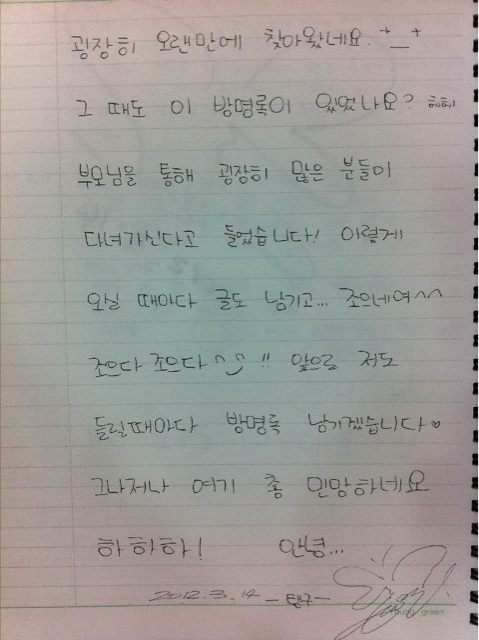 굉장히 오랜만에 찾아왔네요. +_+
그 때도 이 방명록이 있었나요? 헤헤
부모님을 통해 굉장히 많은 분들이
다녀가신다고 들었습니다! 이렇게
오실 때마다 글도 남기고... 조으네여^^
조으다 조으다 ^^ !! 앞으로 저도
들릴때마다 방명록 남기겠습니다♡
그나저나 여기 좀 민망하네요
하하하! 안녕...
2012.3.14 - 탱구 -
young green